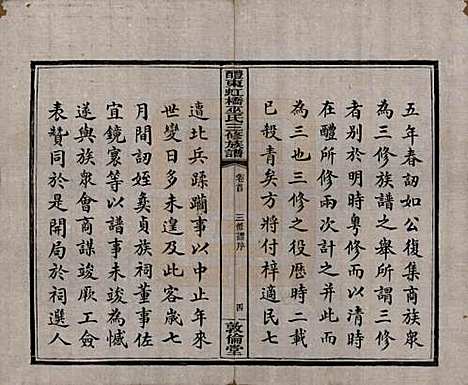 五年春訒如公復集商族眾
為三修族譜之舉所謂三修
者別於明時粵修而以清時
在醴所修兩次而言此三而
為三也三修之歷時二載而
已殺青矣方將付梓適民七
醴東虹橋巫氏三修族譜
卷首
三修譜序
四
敦倫堂
遭北兵蹂躪事以中止年來
世變日多未遑及此客歲七
月間訒姪奐貞族祠董事佐
宜鏡寰等以譜事未竣為憾
遂與族眾會商謀竣厥工僉
表贊同於是開局於祠選人